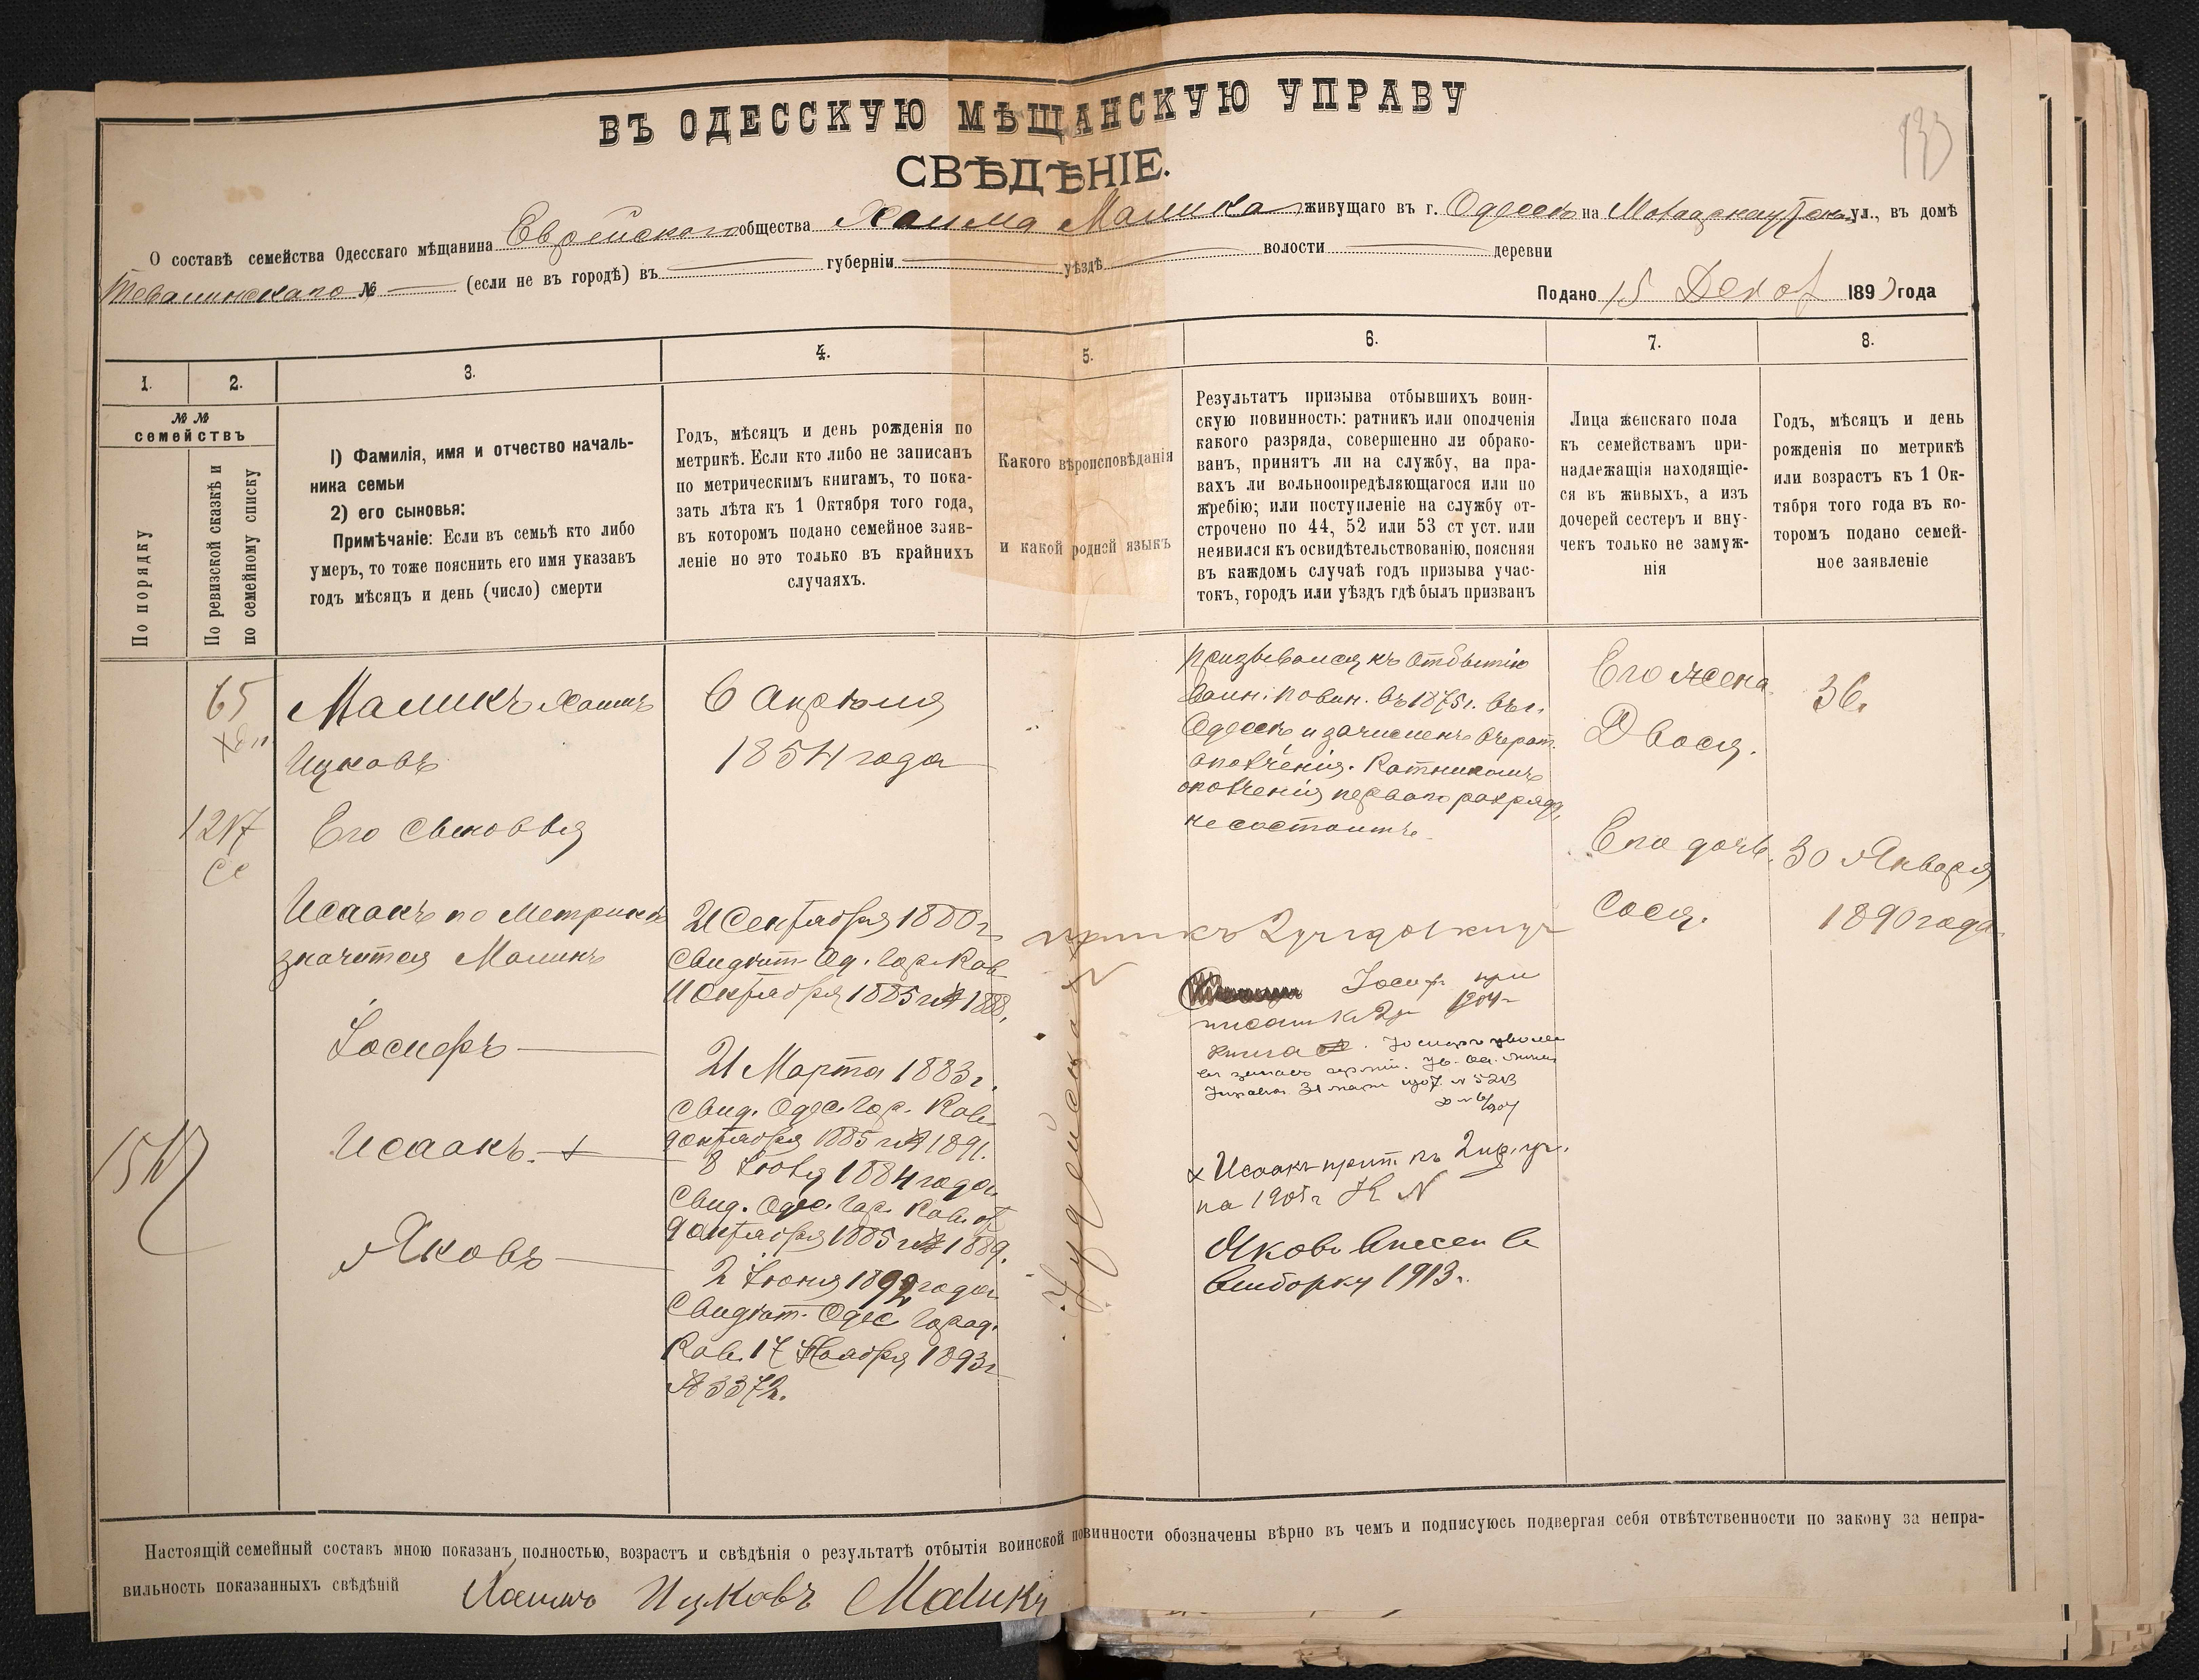 133
ВЪ ОДЕССКУЮ МѢЩАНСКУЮ УПРАВУ
СВѢДѢНІЕ.
О составѣ семейства Одесскаго мѣщанина Еврейскаго общества Хаима Малика живущаго въ г. Одессѣ на ул., въ домѣ
№ — (если не въ городѣ) въ — губерніи — уѣздѣ — волости — деревни
Подано 15 Декаб 189 года
1.
2.
3.
4.
5.
6.
7.
8.
№ №
семействъ
По порядку
По ревизской сказкѣ и
по семейному списку
1) Фамилія, имя и отчество началь-
ника семьи
2) его сыновья:
Примѣчаніе: Если въ семьѣ кто либо
умеръ, то тоже пояснить его имя указавъ
годъ мѣсяцъ и день (число) смерти
Годъ, мѣсяцъ и день рожденія по
метрикѣ. Если кто либо не записанъ
по метрическимъ книгамъ, то пока-
зать лѣта къ 1 Октября того года,
въ которомъ подано семейное заяв-
леніе но это только въ крайнихъ
случаяхъ.
Какого вѣроисповѣданія
и какой родной языкъ
Результатъ призыва отбывшихъ воин-
скую повинность: ратникъ или ополченія
какого разряда, совершенно ли обрако-
ванъ, принятъ ли на службу, на пра-
вахъ ли вольноопредѣляющагося или по
жребію; или поступленіе на службу от-
строчено по 44, 52 или 53 ст уст. или
неявился къ освидѣтельствованію, поясняя
въ каждомъ случаѣ годъ призыва учас-
токъ, городъ или уѣздъ гдѣ былъ призванъ
Лица женскаго пола
къ семействамъ при-
надлежащія находящіе-
ся въ живыхъ, а изъ
дочерей сестеръ и вну-
чекъ только не замуж-
нія
Годъ, мѣсяцъ и день
рожденія по метрикѣ
или возрастъ къ 1 Ок-
тября того года въ ко-
торомъ подано семей-
ное заявленіе
65
1217
1517
Маликъ Хаимъ
Ицковъ
Его сыновья
Исаакъ по Метрикѣ
значится Маликъ
Іосифъ
Исаакъ. +
Яковъ
6 Апрѣля
1854 года
21 Сентября 1880 г.
Свидѣт. Од. Гор. Рав.
11 Октября 1885 г. № 1888.
21 Марта 1883 г.
Свид. Одес. Гор. Рав.
9 октября 1885 г. № 1891.
8 Іюля 1884 года
Свид. Одес. Гор. Рав. от
9 октября 1885 г. № 1889.
2 Іюня 1892 года
Свидѣт. Одес. Город.
Рав. 17 Ноября 1893 г.
№ 3372.
Іудейскаго
Призывался къ отбытію
Воин. повин. въ 1875 г. въ г.
Одессѣ и зачисленъ
ополченія. Ратникомъ
ополченія перваго разряда
не состоитъ.
Іосиф при
1904 г.
книга
31 марта 1907 № 5213
х Исаакъ прип. къ 2 пр. уч.
на 1905 г.
Яковъ внесен в
выборку 1913 г.
Его жена
Двося.
Его дочь.
Сося.
36.
30 Января
1890 года
Настоящій семейный составъ мною показанъ полностью, возрастъ и свѣдѣнія о результатѣ отбытія воинской повинности обозначены вѣрно въ чемъ и подписуюсь подвергая себя отвѣтственности по закону за непра-
вильность показанныхъ свѣдѣній Хаимъ Ицковъ Маликъ